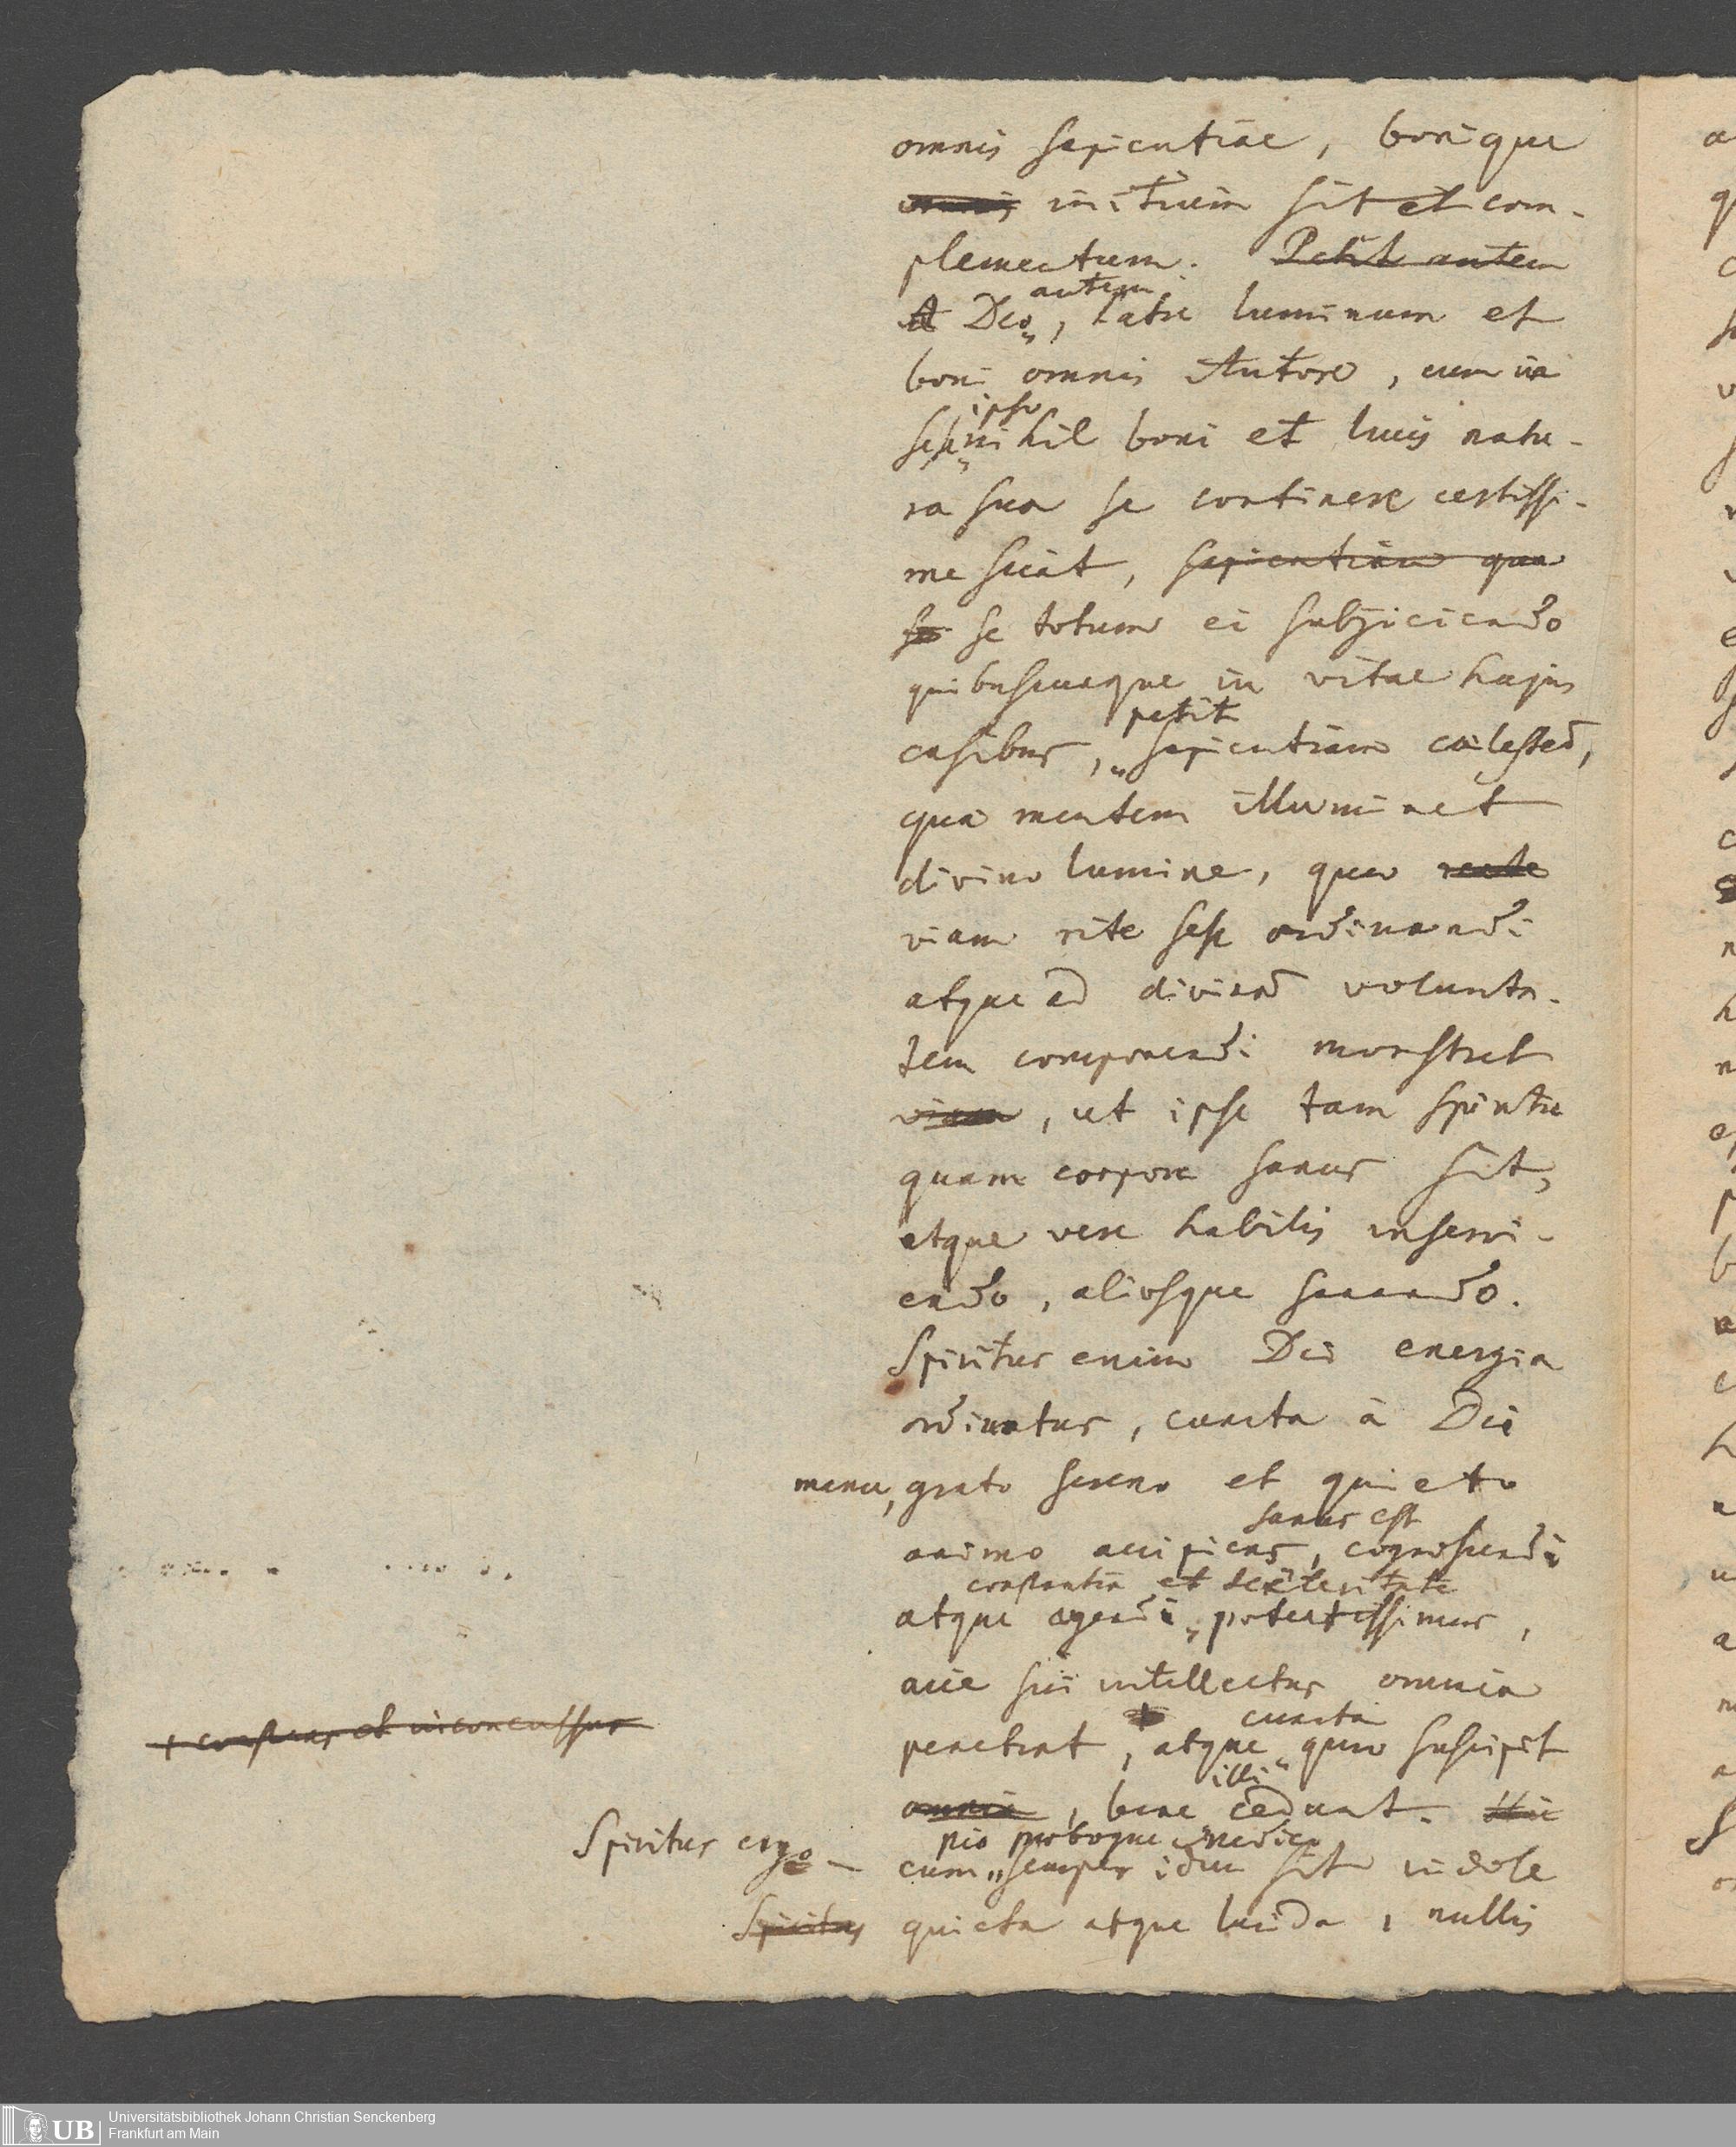 omnis sapientiae, bonique
omnis initium sit et com-
plementum. Petit autem
A Deo autem, Patre luminum et
boni omnis Autore, cum in
se ipso nihil boni et lucis natu-
ra sua se continere certissi-
me sciat, sapientiam qua
se totum ei subjiciendo
quibuscunque in vitae hujus
casibus, petit sapientiam coelestem,
qua mentem illuminet
divino lumine, quo
viam rite sese ordinandi
atque ad divinam volunta-
tem componendi monstret
viam, ut ipse tam spiritu
quam corpore sanus sit,
atque vere habilis inservi-
endo, aliosque sanando.
Spiritus enim Dei energia
ordinatus, cuncta à Dei
manu, grato sereno et quieto
animo accipiens, sanus est, cognoscendi
atque agendi constantia et dexteritate potentissimus,
acie sui intellectus omnia
penetrat, atque cuncta quae suscipit
+ constans et inconcussus
omnia, bene illi cedunt.
Spiritus ergo
cum pio proboque medico semper idem sit indole
Spiritus
quieta atque lucida, nullis
Universitätsbibliothek Johann Christian Senckenberg
Frankfurt am Main
UB